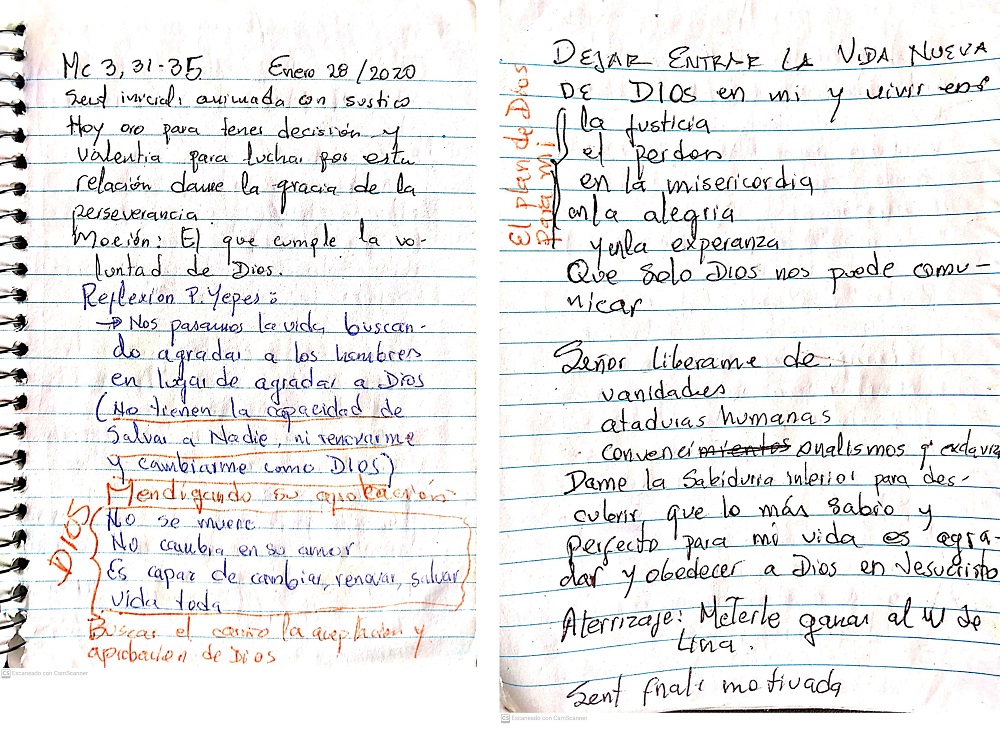 Mc 3, 31-35 Enero 28/2020
Sent inicial: animada con sustico
Hoy oro para tener decisión y
valentia para luchar por esta
relación dame la gracia de la
perseverancia.
Moción: El que cumple la vo-
luntad de Dios.
Reflexion P. Yepes:
→ Nos pasamos la vida buscan-
do agradar a los hombres
en lugar de agradar a Dios
(No tienen la capacidad de
Salvar a Nadie, ni renovarme
y cambiarme como DIOS)
Mendigando su aprobación
DIOS
No se muere
No cambia en su amor
Es capaz de cambiar, renovar, salvar
vida toda
Buscar el cariño la aceptacion y
aprobacion de Dios
CS Escaneado con CamScanner
DEJAR ENTRAR LA VIDA NUEVA
DE DIOS en mi y vivir en
El plan de Dios
para mi
la justicia
el perdon
en la misericordia
en la alegria
y en la esperanza
Que Solo DIOS nos puede comu-
nicar
Señor liberame de:
vanidades
ataduras humanas
convenci onalismos q'
Dame la Sabiduria interior para des-
cubrir, que lo más Sabio y
perfecto para mi vida es agra-
dar y obedecer a Dios en Jesucristo
Aterrizaje: MeTerle ganas al W de
Lina.
Sent final: motivada
CS Escaneado con CamScanner